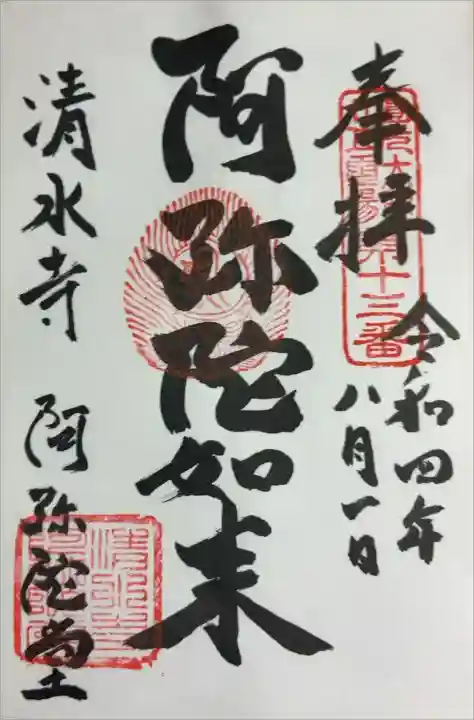 奉拝
令和四年
八月一日
十三番
阿弥陀如来
清水寺 阿弥陀堂